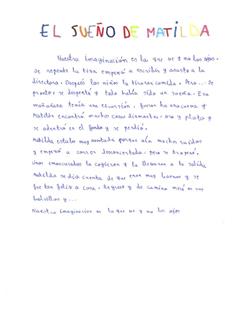 EL SUEÑO DE MATILDA
Nuestra imaginación es la que ve y no los ojos.
De repente la tiza empezó a escribir y asustó a la
directora. Después los niños la tiraron comida. Pero... de
pronto se despertó y todo había sido un sueño. Esa
mañana tenía una excursión. Fueron a una cueva y
Matilda encontró muchas cosas diamantes, oro y plata y
se adentró en el fondo y se perdió.
Matilda estaba muy asustada porque oía muchos ruidos
y empezó a correr desconcertada. Pero se tropezó.
Unos enmascarados la cogieron y la llevaron a la salida
Matilda se dió cuenta de que eran muy buenos y se
fue tan feliz a casa. Regresó y de camino miró en sus
bolsillos y...
Nuestra imaginación es la que ve y no los ojos